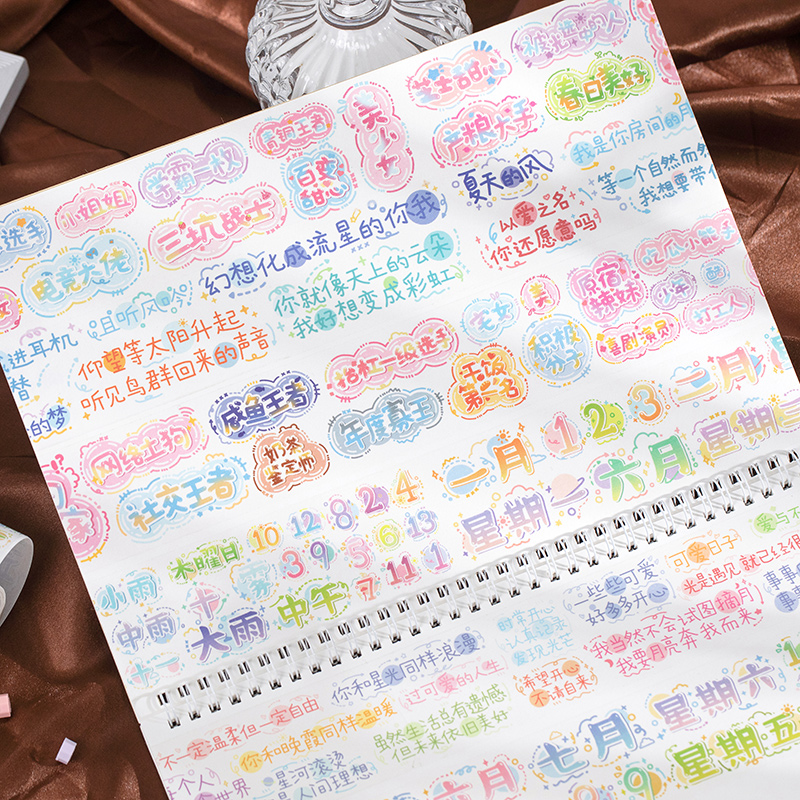 被光选中的人
芝士甜心
春日美好
青铜王者
美少女
产粮大手
学霸一枚
百变甜心
小姐姐
三坑战士
选手
电竞大佬
夏天的风
我是你房间的月
等一个自然而然
我想要带你
幻想化成流星的你我
以爱之名
你还愿意吗
且听风吟
你就像天上的云朵
我好想变成彩虹
吃瓜小能手
原宿辣妹
少年
打工人
喜剧演员
进耳机
仰望等太阳升起
听见鸟群回来的声音
的梦
美
宅女
积极分子
抬杠一级选手
干饭第一名
咸鱼王者
年度寡王
网络土狗
奶茶鉴定师
社交王者
一月
1
2
3
二月
星期一
六月
星期三
10 12 8 2 4
木曜日
小雨
雾
3 9 5 6 13
中雨
十
大雨
中午
7 11 1
十一
爱与不
可爱日子
一些些可爱
好多多开心
光是遇见就已经很
发现光芒
我当然不会试图摘月
我要月亮奔我而来
希望开心
不请自来
你和星光同样浪漫
过可爱的人生
不一定温柔但一定自由
你和晚霞同样温暖
虽然生活总有遗憾
但未来依旧美好
星河滚烫
是人间理想
个人
世界
六月
七月
星期六
8
9
星期五